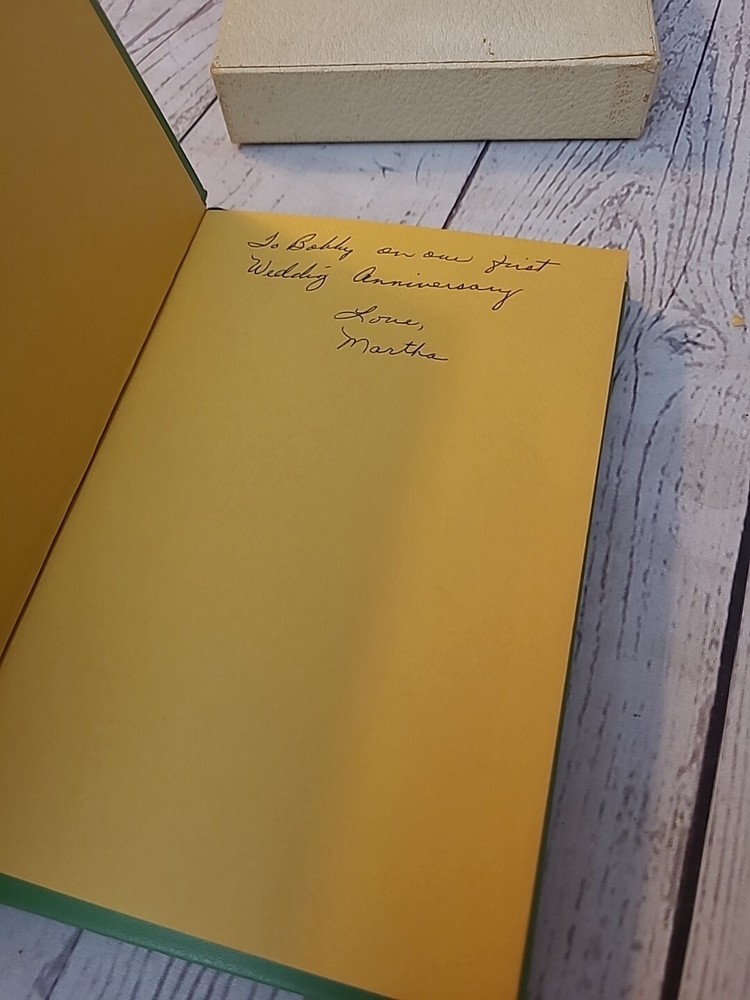 To Bobby on our first
Weddig Anniversary
Love,
Martha